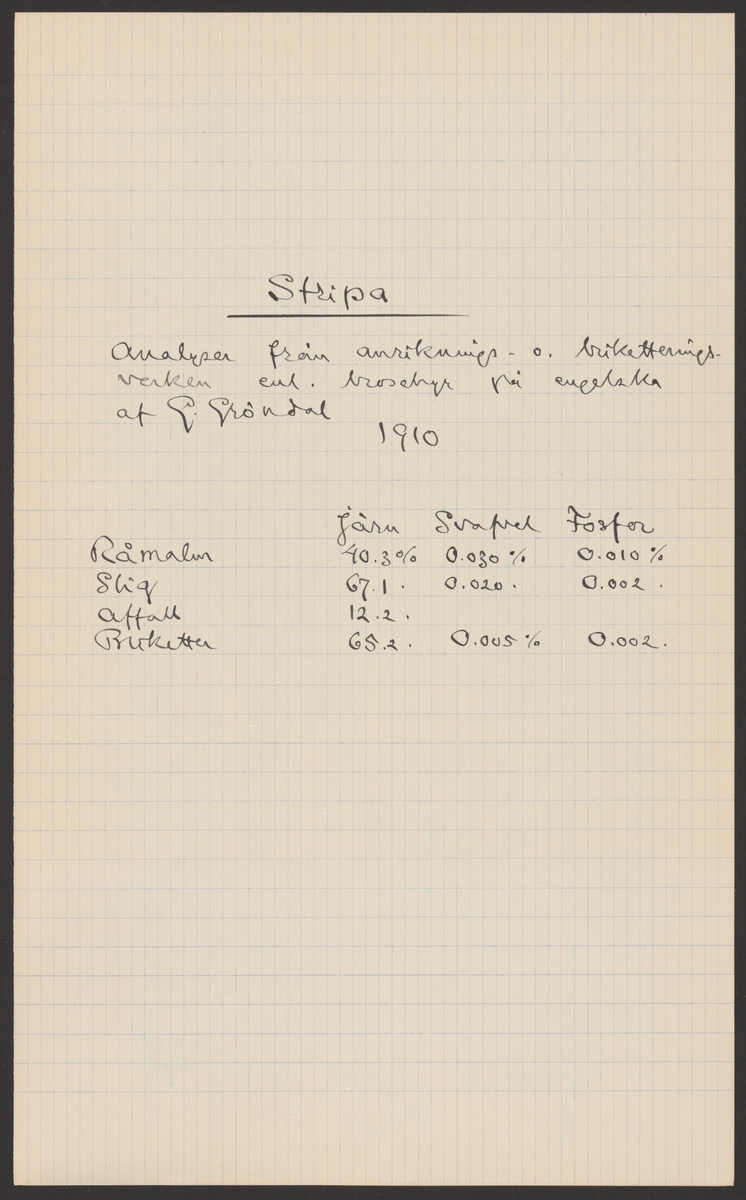 Stripa
Analyser från anriknings- o. briketterings-
verken enl. broschyr på engelska
af G. Gröndal
1910
Järn Svafvel Fosfor
Råmalm 40.3% 0.030% 0.010%
Slig 67.1 . 0.020 . 0.002 .
Affall 12.2 .
Briketter 65.2 . 0.005% 0.002 .